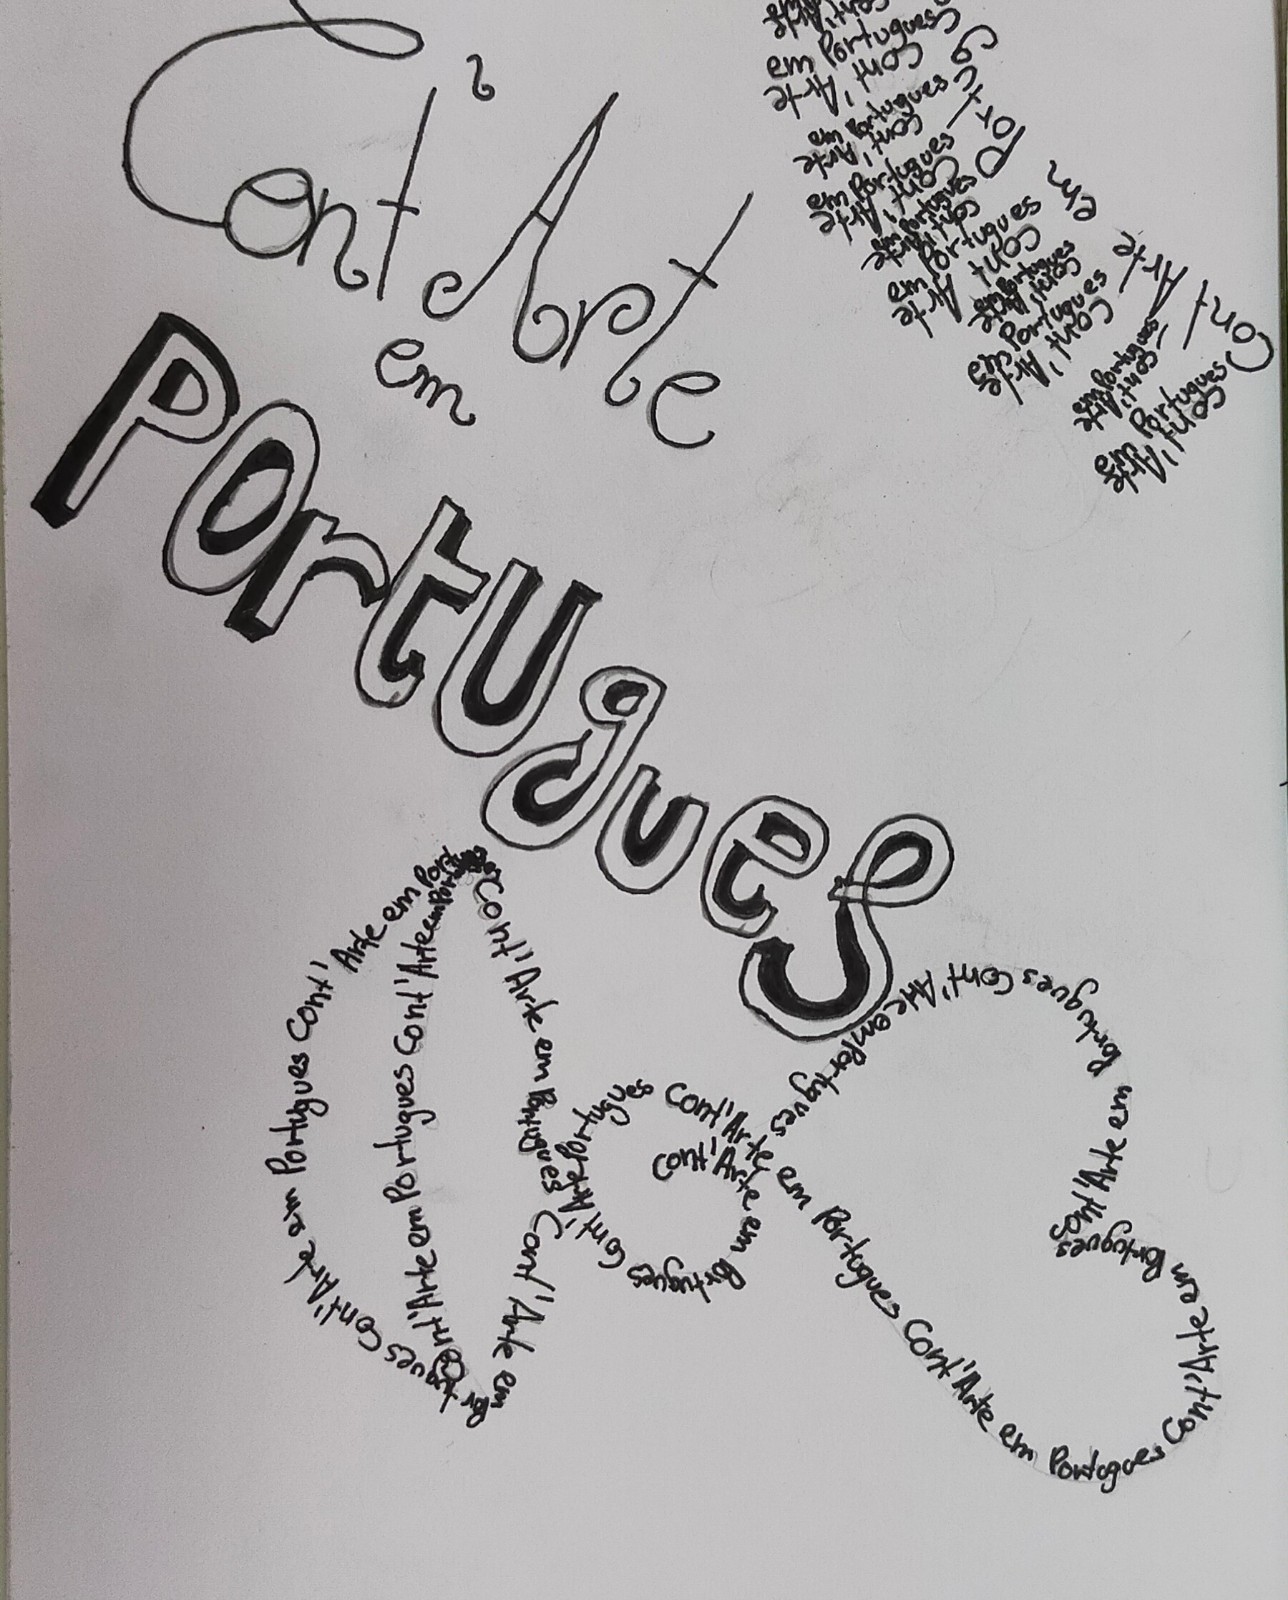 Cont'Arte
em
Portugues
Cont'Arte em Portugues
em Portugues
Cont'Arte
em Portugues
Cont'Arte
em Portugues
Cont'Arte
em Portugues
Cont'Arte
em Portugues
Cont'Arte
em Portugues
Cont'Arte
em Portugues
Cont'Arte
em Portugues
Cont'Arte
em Portugues
Cont'Arte
Cont'Arte em Portugues Cont'Arte em Portugues Cont'Arte em Port
Cont'Arte em Portugues Cont'Arte em Portugues
Cont'Arte em Portugues Cont'Arte em Por
Cont'Arte em Portugues Cont'Arte Portugues
Cont'Arte em Portugues Cont'Arte em Portugues Cont'Arte em Portugues Cont'Arte em Portugues Cont'Arte em Portugues